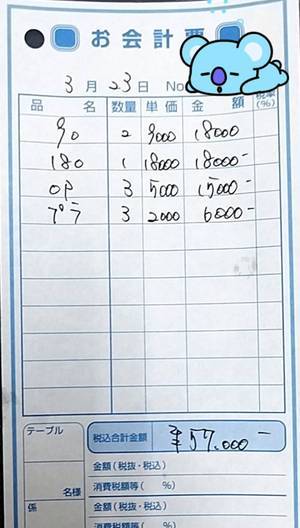 お会計票
3月23日 No
品名 数量 単価 金額 税率(%)
90 2 9000 18000
180 1 18000 18000-
OP 3 5000 15000-
プラ 3 2000 6000-
テーブル
税込合計金額 ¥57,000-
金額(税抜・税込)
名様 消費税額等( %)
係 金額(税抜・税込)
消費税額等( %)